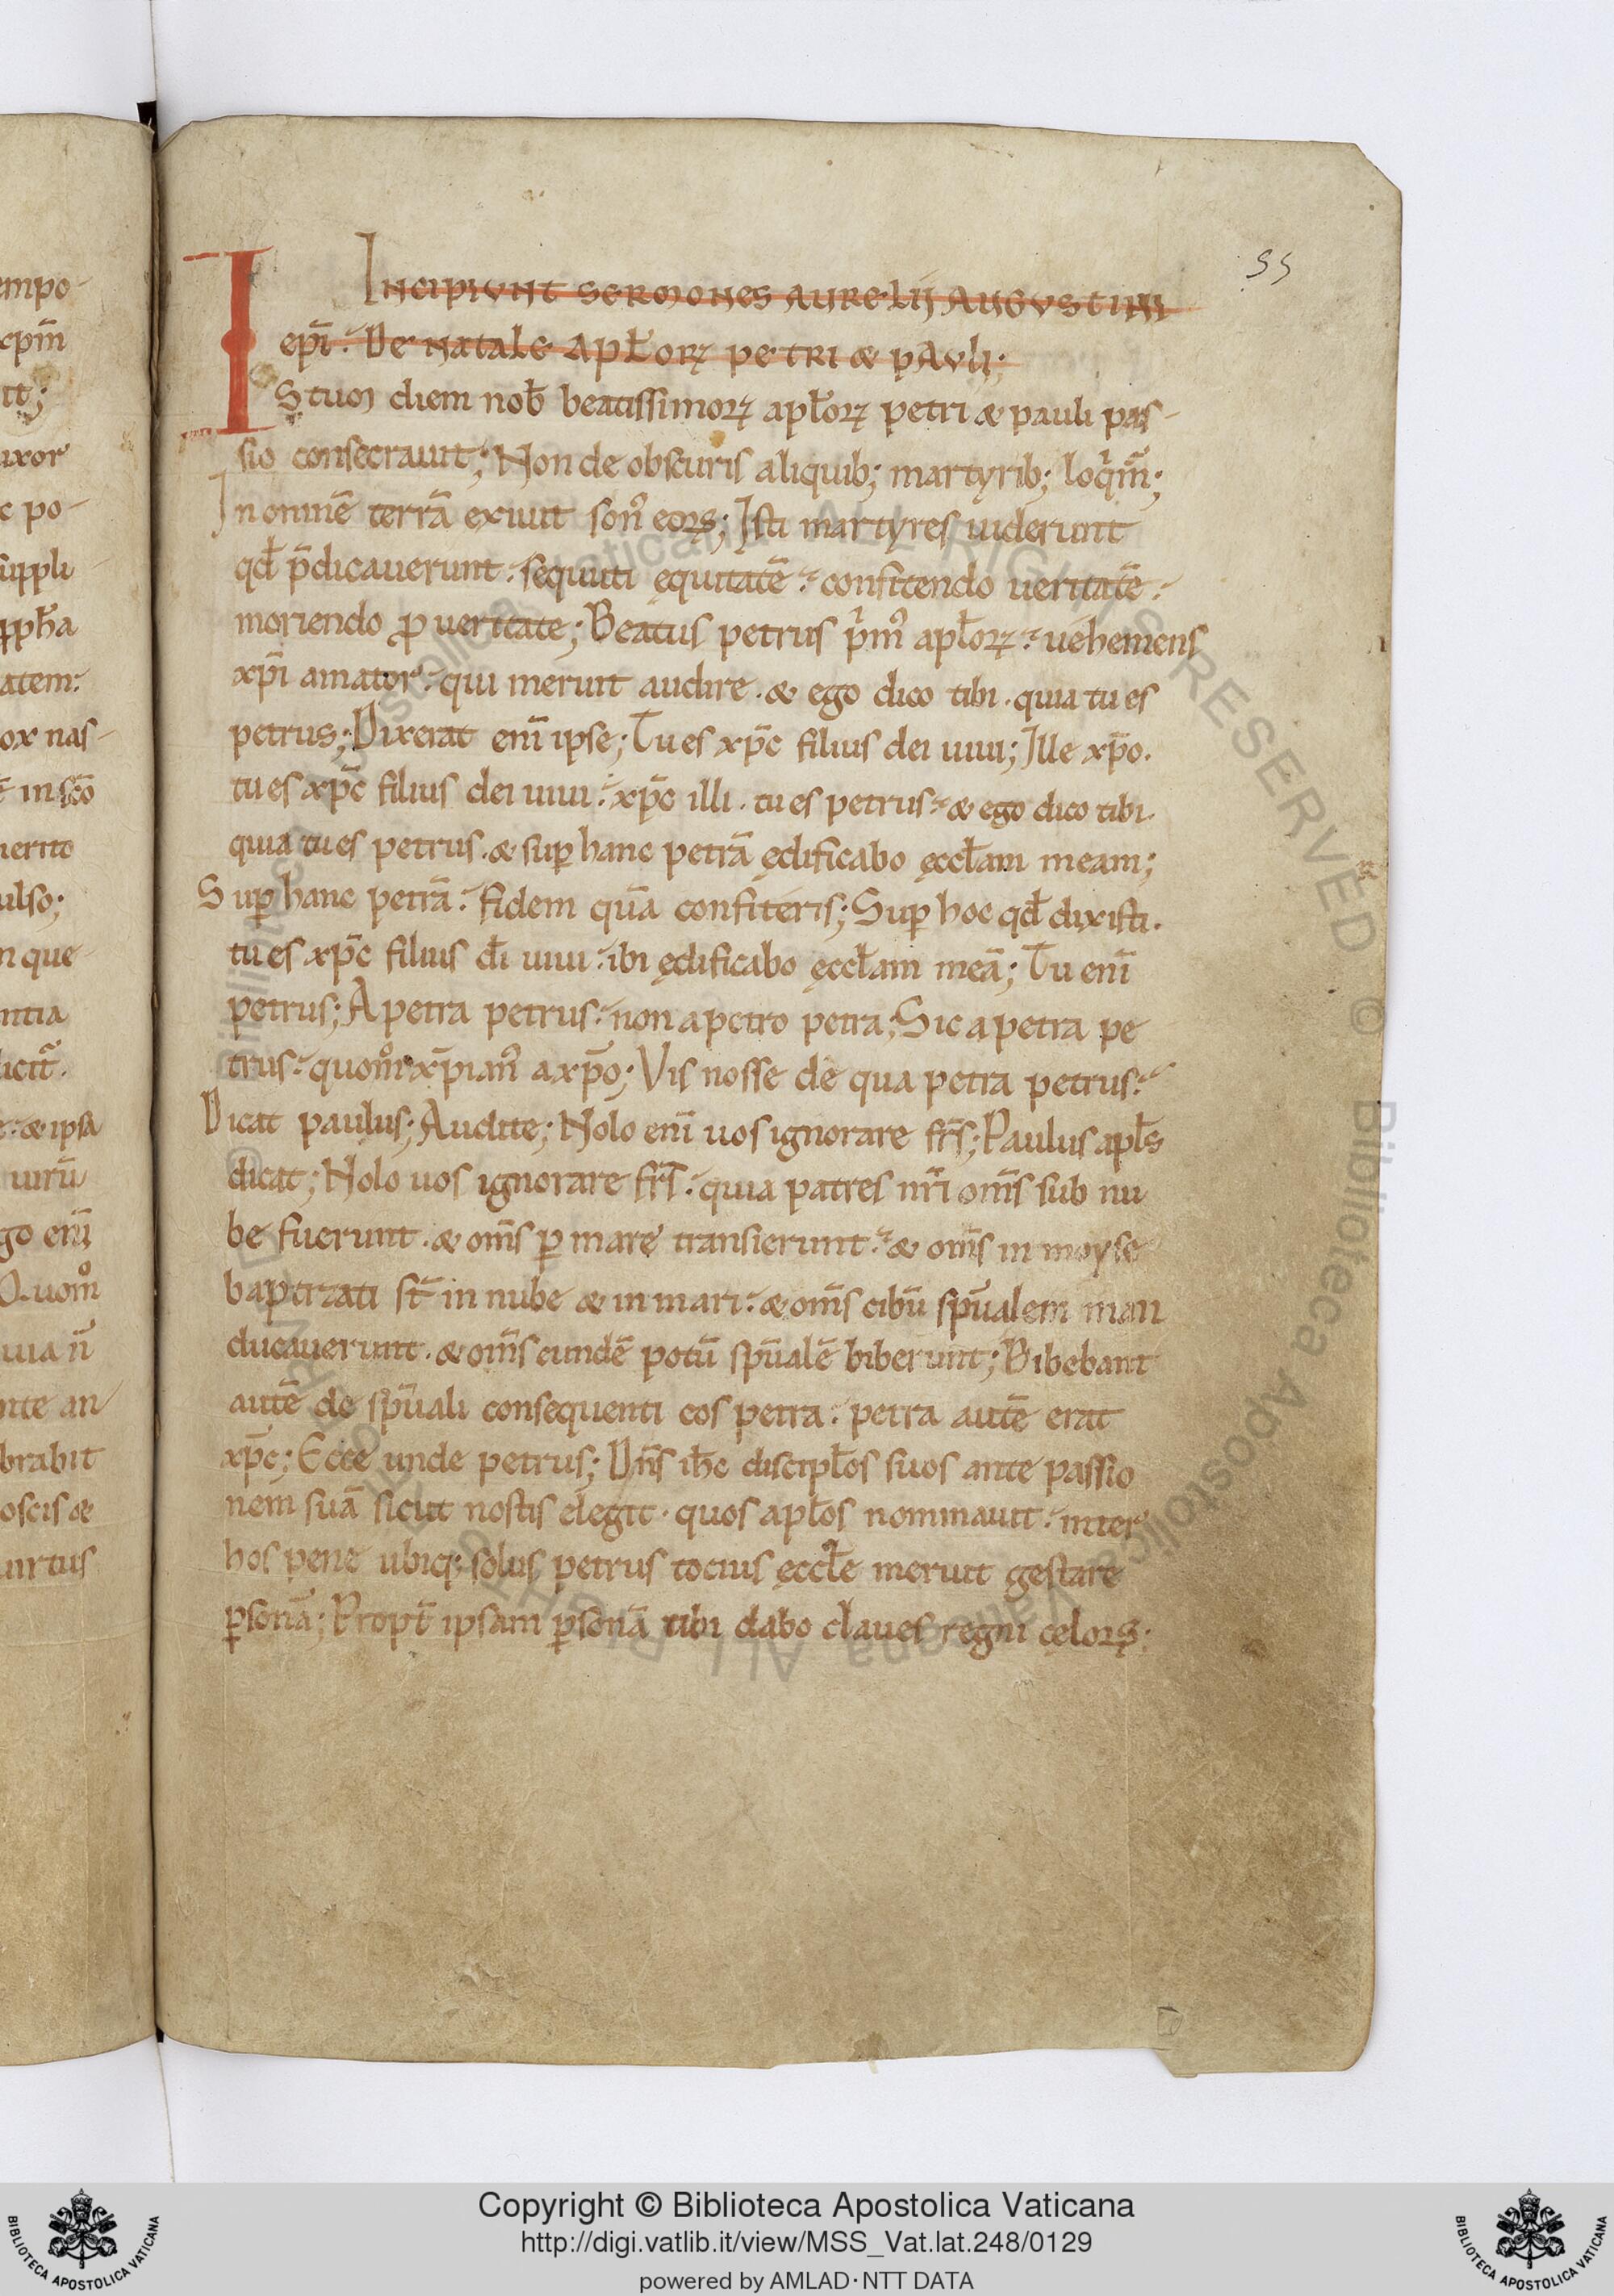 55
Incipiunt sermones Aurelii Augustini
ep̄i. De natale apƚoꝝ petri & pauli;
Istum diem nob̄ beatissimoꝝ apƚoꝝ petri & pauli pas-
sio consecrauit; Non de obscuris aliquib; martyrib; loq̄m̄;
In omnē terrā exiuit son᷒ eoꝝ; Isti martyres uiderunt
qd̄ p̄dicauerunt. sequuti ęquitatē. confitendo ueritatē.
moriendo ꝓ ueritate; Beatus petrus p̄m᷒ apƚoꝝ. uehemens
xp̄i amator. qui meruit audire. & ego dico tibi. quia tu es
petrus; Dixerat eni̅ ipse; Tu es xp̄c filius dei uiui; Ille xp̄o.
tu es xp̄c filius dei uiui. xp̄c illi. tu es petrus. & ego dico tibi.
quia tu es petrus. & suꝑ hanc petrā ędificabo ęccƚam meam;
Suꝑ hanc petrā. fidem quā confiteris; Suꝑ hoc qd̄ dixisti.
tu es xp̄c filius d̄i uiui. ibi ędificabo ęccƚam meā; Tu eni̅
petrus; A petra petrus. non a petro petra; Sic a petra pe
trus. quom̊ xp̄ian᷒ a xp̄o; Vis nosse de qua petra petrus.
Dicat paulus; Audite; Nolo eni̅ uos ignorare fr̄s; Paulus apƚs
dicat; Nolo uos ignorare fr̄s. quia patres nr̄i om̄s sub nu
be fuerunt. & om̄s ꝑ mare transierunt. & om̄s in moyse
baptizati st̄ in nube & in mari. & om̄s cibū sp̄ualem man
ducauerunt. & om̄s eundē potū sp̄ualē biberunt; Bibebant
autē de sp̄uali consequenti eos petra. petra autē erat
xp̄c; Ecce unde petrus; Dn̄s ih̄c discipƚos suos ante passio
nem suā sicut nostis elegit. quos apƚos nominauit. inter
hos pene ubiq; solus petrus tocius ęccƚe meruit gestare
ꝑsonā; Propt̄ ipsam ꝑsonā tibi dabo claues regni cęloꝝ;
Copyright © Biblioteca Apostolica Vaticana
http://digi.vatlib.it/view/MSS_Vat.lat.248/0129
powered by AMLAD·NTT DATA
BIBLIOTECA APOSTOLICA VATICANA
BIBLIOTECA APOSTOLICA VATICANA